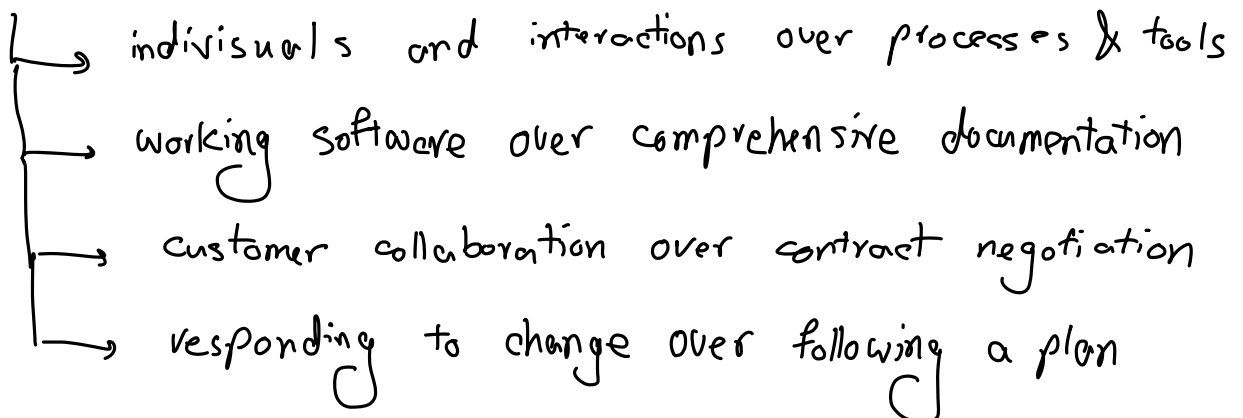 indivisuals and interactions over processes & tools
working software over comprehensive documentation
customer collaboration over contract negotiation
responding to change over following a plan